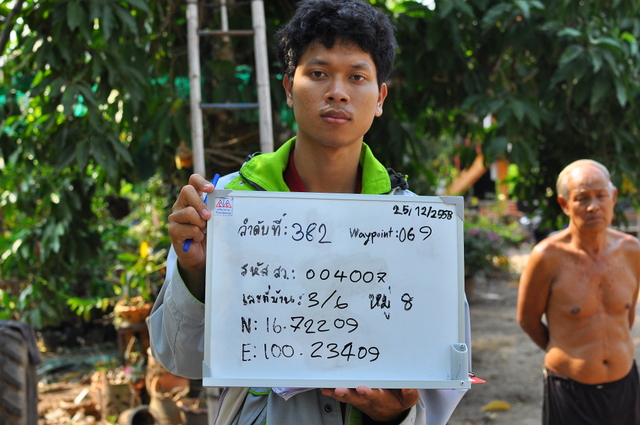 25/12/2558
ลำดับที่: 362 Waypoint: 069
รหัส สว.: 004007
เลขที่บ้าน: 3/6 หมู่ 8
N: 16.72209
E: 100.23409